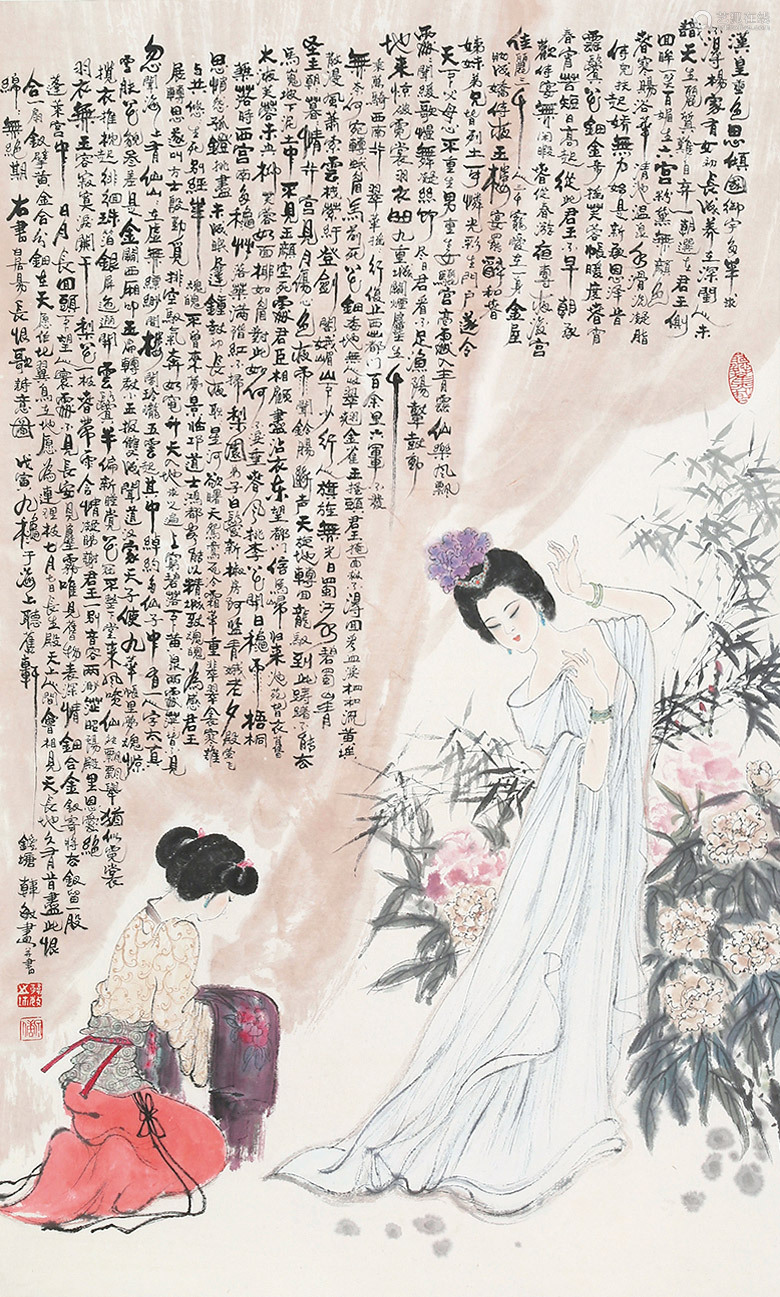 漢皇重色思傾國御宇多年求
不得楊家有女初長成養在深閨人未
識天生麗質難自棄一朝選在君王側
回眸一笑百媚生六宮粉黛無顏色
春寒賜浴華清池溫泉水滑洗凝脂
侍兒扶起嬌無力始是新承恩澤時
雲鬢花顏金步搖芙蓉帳暖度春宵
春宵苦短日高起從此君王不早朝承
歡侍宴無閒暇春從春遊夜專夜後宮
佳麗三千人三千寵愛在一身金屋
妝成嬌侍夜玉樓宴罷醉和春
姊妹弟兄皆列土可憐光彩生門戶遂令
天下父母心不重生男重生女驪宮高處入青雲仙樂風飄
處處聞緩歌慢舞凝絲竹盡日君看不足漁陽鼙鼓動
地來驚破霓裳羽衣曲九重城闕煙塵生千
乘萬騎西南行翠華搖搖行復止西出都門百餘里六軍不發
無奈何宛轉蛾眉馬前死花鈿委地無人收翠翹金雀玉搔頭君王掩面救不得回看血淚相和流黃埃
散漫風蕭索雲棧縈紆登劍閣峨嵋山下少行人旗旌無光日蜀江水碧蜀山青
聖主朝朝暮暮情行宮見月傷心色夜雨聞鈴腸斷聲天旋地轉回龍馭到此躊躇不能去
馬嵬坡下泥土中不見玉顏空死處君臣相顧盡沾衣東望都門信馬歸歸來池苑皆依舊
太液芙蓉未央柳芙蓉如面柳如眉對此如何不淚垂春風桃李花開日秋雨梧桐
葉落時西宮南內多秋草落葉滿階紅不掃梨園弟子白髮新椒房阿監青娥老夕殿螢飛
思悄然孤燈挑盡未成眠遲遲鐘鼓初長夜耿耿星河欲曙天鴛鴦瓦冷霜華重翡翠衾寒誰
與共悠悠生死別經年魂魄不曾來入夢臨邛道士鴻都客能以精誠致魂魄為感君王
展轉思遂叫方士殷勤覓排空馭氣奔如電升天入地求之遍上窮碧落下黃泉兩處茫茫皆不見
忽聞海上有仙山山在虛無縹緲間樓閣玲瓏五雲起其中綽約多仙子中有一人字太真
雪膚花貌參差是金闕西廂叩玉扃轉教小玉報雙成聞道漢家天子使九華帳里夢魂驚
攬衣推枕起徘徊珠箔銀屏迤邐開雲鬢半偏新睡覺花冠不整下堂來風吹仙袂飄飄舉猶似霓裳
羽衣舞玉容寂寞淚闌干梨花一枝春帶雨含情凝睇謝君王一別音容兩渺茫昭陽殿里恩愛絕
蓬萊宮中日月長回頭下望人寰處不見長安見塵霧唯將舊物表深情鈿合金釵寄將去釵留一股
合一扇釵擘黃金合分鈿在天願作比翼鳥在地願為連理枝七月七日長生殿天上人間會相見天長地久有時盡此恨
綿綿無絕期右書白居易長恨歌詩意圖戊寅九秋于海上聽舊軒
錢塘韓敏畫并書